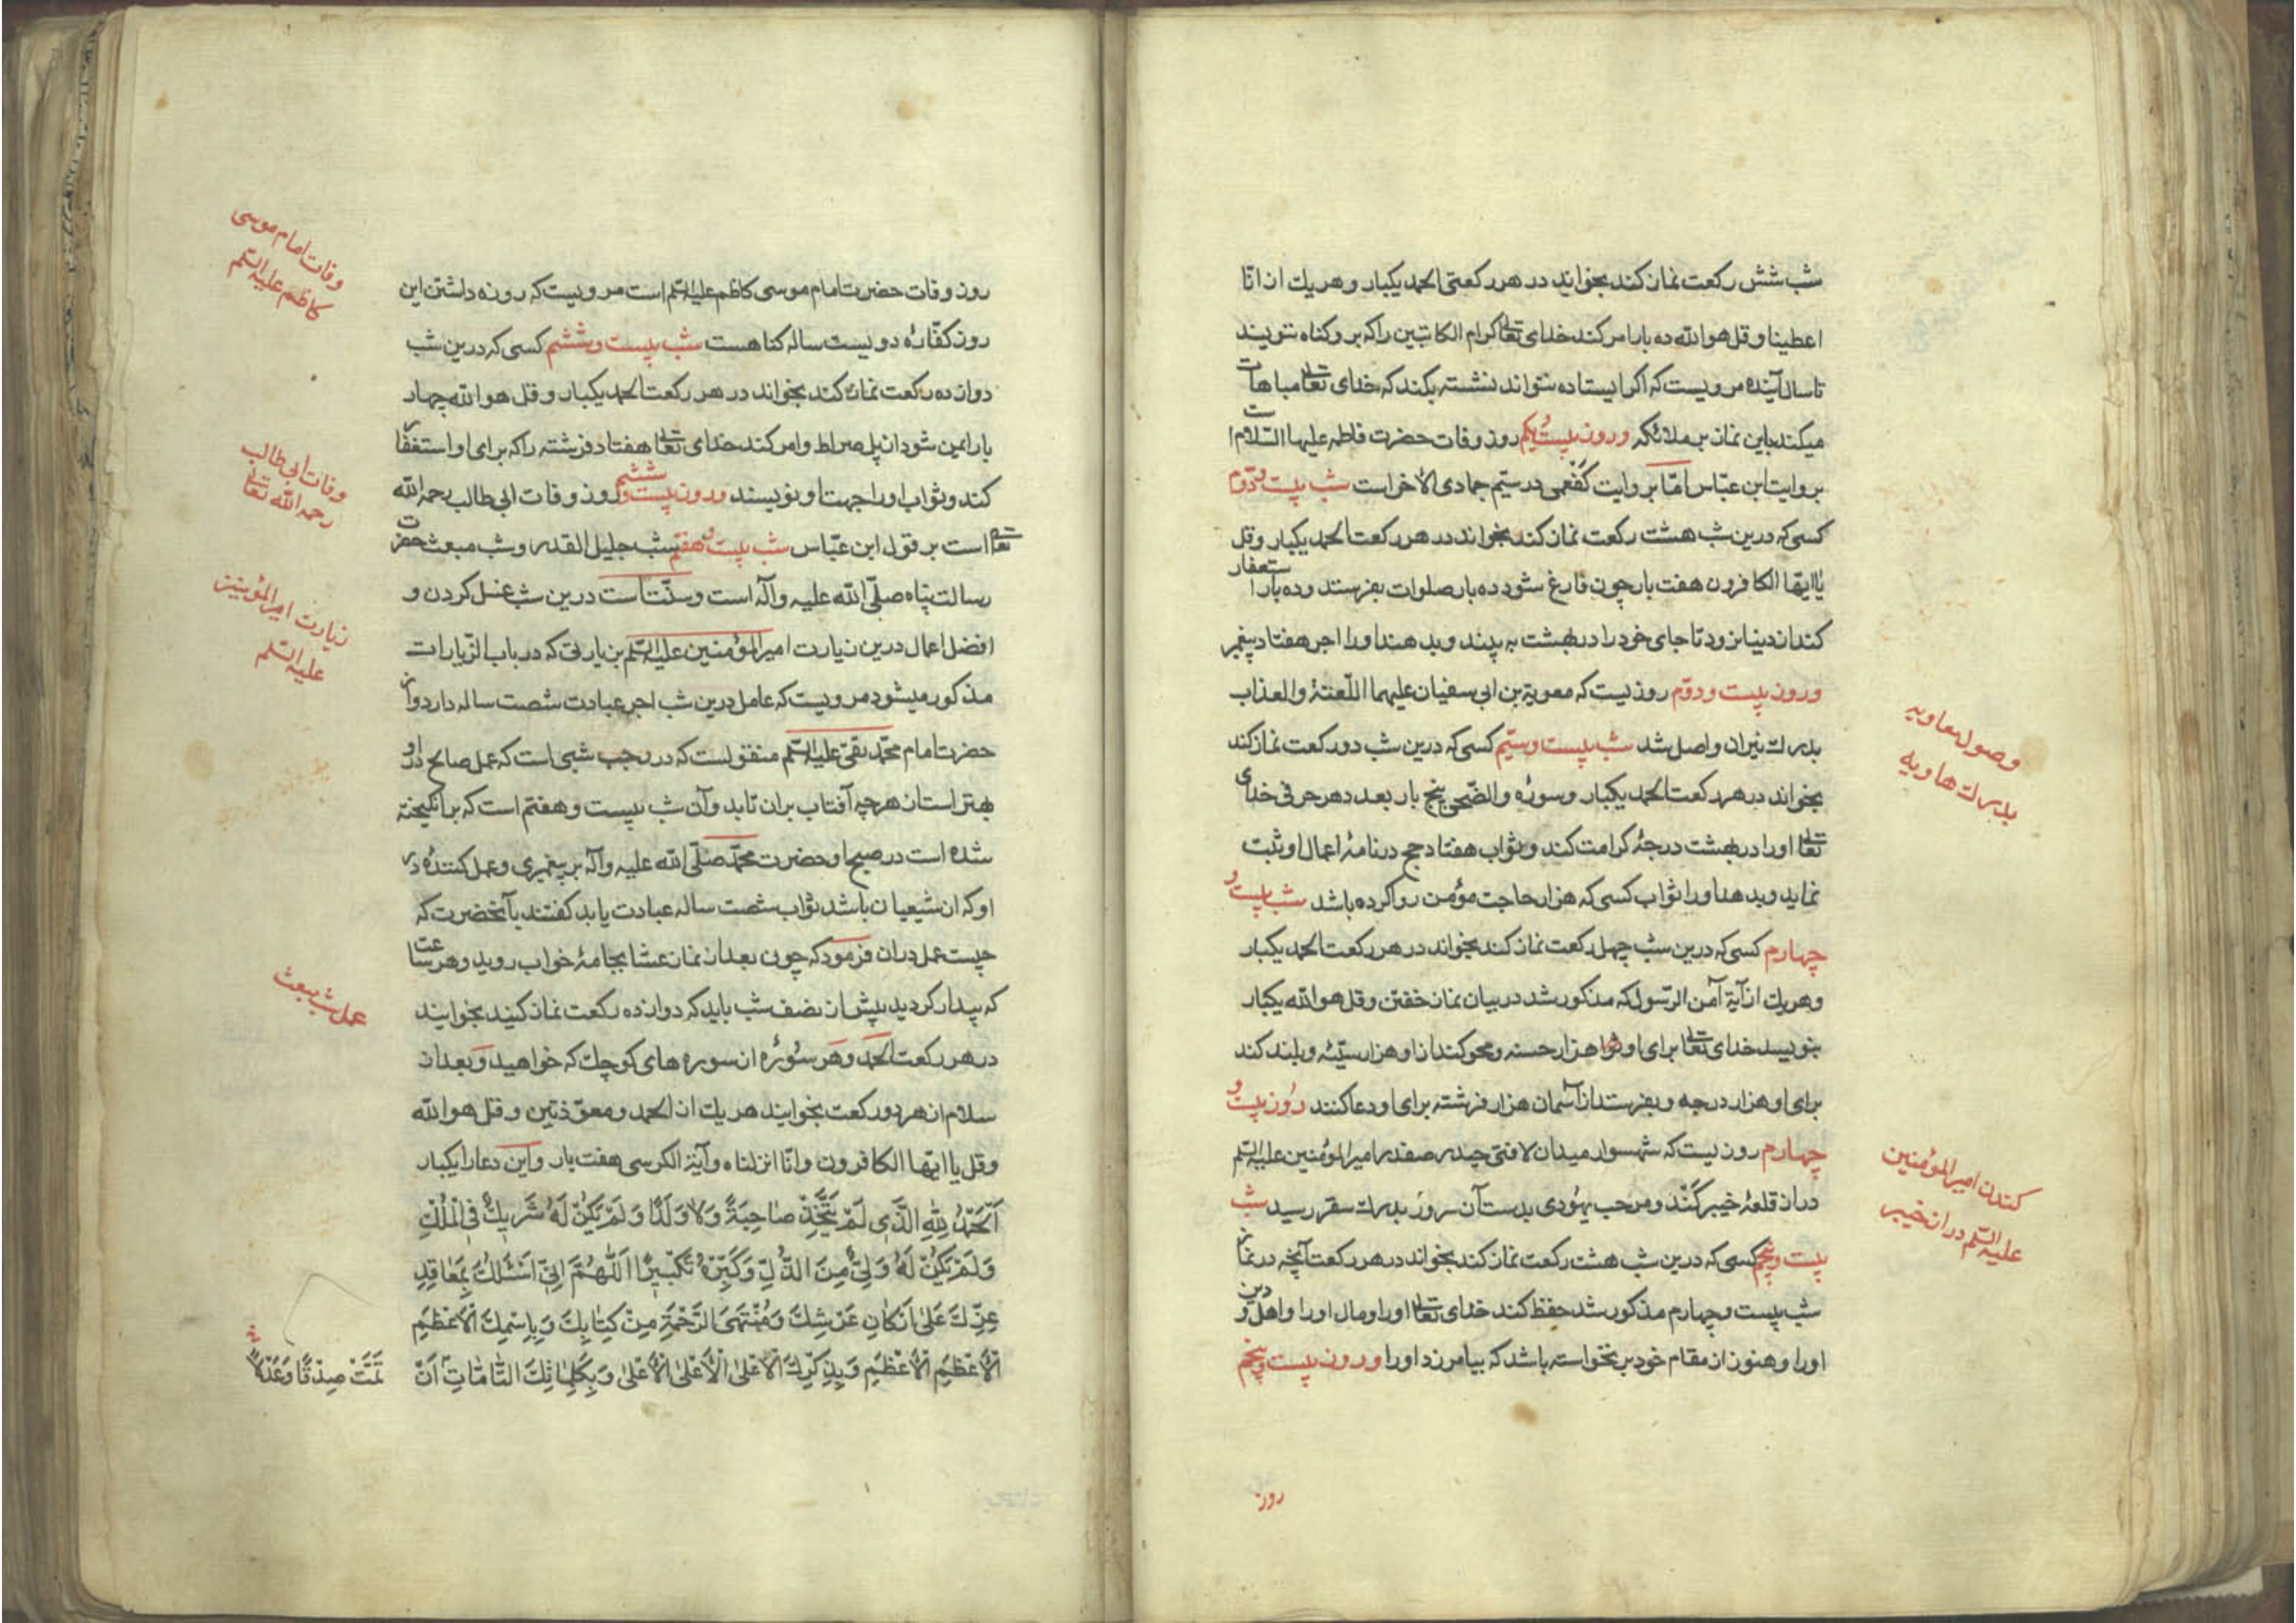 شب شش رکعت نماز کند بخواند در هر رکعتی الحمد یکبار و هریك از انّا
اعطینا و قل هو الله ده بار امر کند خدای تعالی کرام الکاتبین را که بر و کناه ننویسند
تا سال آینده مرویست که اکر ایستاده نتواند نشسته بکند که خدای تعالی مباهات
میکند باین نماز بر ملائکه و روز بیست یکم روز وفات حضرت فاطمه علیها السّلام
بروایت ابن عبّاس امّا بروایت کفعمی در سیّم جمادی الآخر است شب بیست و دوّم
کسی که درین شب هشت رکعت نماز کند بخواند در هر رکعت الحمد یکبار و قل
یا ایّها الکافرون هفت بار چون فارغ شود ده بار صلوات بفرستد و ده بار استغفار
کند از دنیا نرود تا جای خود را در بهشت به بیند و بدهند اورا اجر هفتاد پیغمبر
و روز بیست و دوّم روزیست که معویة بن ابی سفیان علیهما اللّعنة والعذاب
بدرك نیران واصل شد شب بیست و سیّم کسی که درین شب دو رکعت نماز کند
بخواند در هر رکعت الحمد یکبار و سورهٔ والضّحی پنج بار بعدد هر حرفی خدای
تعالی اورا در بهشت درجهٔ کرامت کند و ثواب هفتاد حج در نامهٔ اعمال او ثبت
نماید و بدهد اورا ثواب کسی که هزار حاجت مؤمن روا کرده باشد شب بیست و
چهارم کسی که درین شب چهل رکعت نماز کند بخواند در هر رکعت الحمد یکبار
و هریك از آیة آمن الرّسول که مذکور شد در بیان نماز خفتن و قل هو الله یکبار
بنویسد خدای تعالی برای او هزار حسنه و محو کند از او هزار سیّئه و بلند کند
برای او هزار درجه و بفرستد از آسمان هزار فرشته برای او دعا کنند روز بیست و
چهارم روزیست که شهسوار میدان لا فتی حیدر صفدر امیر المؤمنین علیه السّلم
در از قلعهٔ خیبر کند و مرحب یهودی بدست آن سرور بدرك سقر رسید شب
بیست و پنجم کسی که درین شب هشت رکعت نماز کند بخواند در هر رکعت آنچه در نماز
شب بیست و چهارم مذکور شد حفظ کند خدای تعالی اورا و مال اورا و اهل و دین
اورا و هنوز از مقام خود برنخواسته باشد که بیامرزد اورا و روز بیست و پنجم
وصول معاویه
بدرك هاویه
کندن امیر المؤمنین
علیه السّلم در از خیبر
روز
روز وفات حضرت امام موسی کاظم علیه السّلم است مرویست که روزه داشتن این
روز کفّارهٔ دویست ساله کناهست شب بیست و ششم کسی که درین شب
دوازده رکعت نماز کند بخواند در هر رکعت الحمد یکبار و قل هو الله چهار
بار ایمن شود از پل صراط و امر کند خدای تعالی هفتاد فرشته را که برای او استغفار
کند و ثواب اورا جهت او نویسند و روز بیست و ششم روز وفات ابی طالب رحمه الله
تعالی است بر قول ابن عبّاس شب بیست و هفتم شب جلیل القدر و شب مبعث حضرت
رسالت پناه صلّی الله علیه و آله است و سنّت است درین شب غسل کردن و
افضل اعمال درین زیارت امیر المؤمنین علیه السّلم بزیارتی که در باب الزیارات
مذکور میشود مرویست که عامل درین شب اجر عبادت شصت ساله دارد و از
حضرت امام محمّد تقی علیه السّلم منقولست که در رجب شبی است که عمل صالح در او
بهتر است از هرچه آفتاب بران تابد و آن شب بیست و هفتم است که برانکیخته
شده است در صبح او حضرت محمّد صلّی الله علیه و آله بر پیغمبری و عمل کنندهٔ در
او که از شیعیان باشد ثواب شصت ساله عبادت یابد کفتند بآنحضرت که
چیست عمل دران فرمود که چون بعد از نماز عشا بجامهٔ خواب روید و هر ساعت
که بیدار کردید پیش از نصف شب باید که دوازده رکعت نماز کنید بخوانید
در هر رکعت الحمد و هر سُورهٔ از سوره های کوچك که خواهید و بعد از
سلام از هر دو رکعت بخوانید هریك از الحمد و معوّذتین و قل هو الله
و قل یا ایّها الکافرون و انّا انزلناه و آیة الکرسی هفت بار و این دعا را یکبار
اَلْحَمْدُ لِلّهِ الَّذِی لَمْ یَتَّخِذْ صاحِبَةً وَلا وَلَدًا وَلَمْ یَکُنْ لَهُ شَریكٌ فِی الْمُلْكِ
وَلَمْ یَکُنْ لَهُ وَلِیٌّ مِنَ الذُّلِّ وَکَبِّرْهُ تَکْبیرًا اَللّهُمَّ اِنّی اَسْئَلُكَ بِمَعاقِدِ
عِزِّكَ عَلی اَرْکانِ عَرْشِكَ وَمُنْتَهَی الرَّحْمَةِ مِنْ کِتابِكَ وَبِاسْمِكَ الْاَعْظَمِ
الْاَعْظَمِ الْاَعْظَمِ وَبِذِکْرِكَ الْاَعْلَی الْاَعْلَی الْاَعْلی وَبِکَلِماتِكَ التّامّاتِ اَنْ
تَمَّتْ صِدْقًا وَعَدْلاً
وفات امام موسی
کاظم علیه السّلم
وفات ابی طالب
رحمه الله تعالی
زیارت امیر المؤمنین
علیه السّلم
عمل شب مبعث